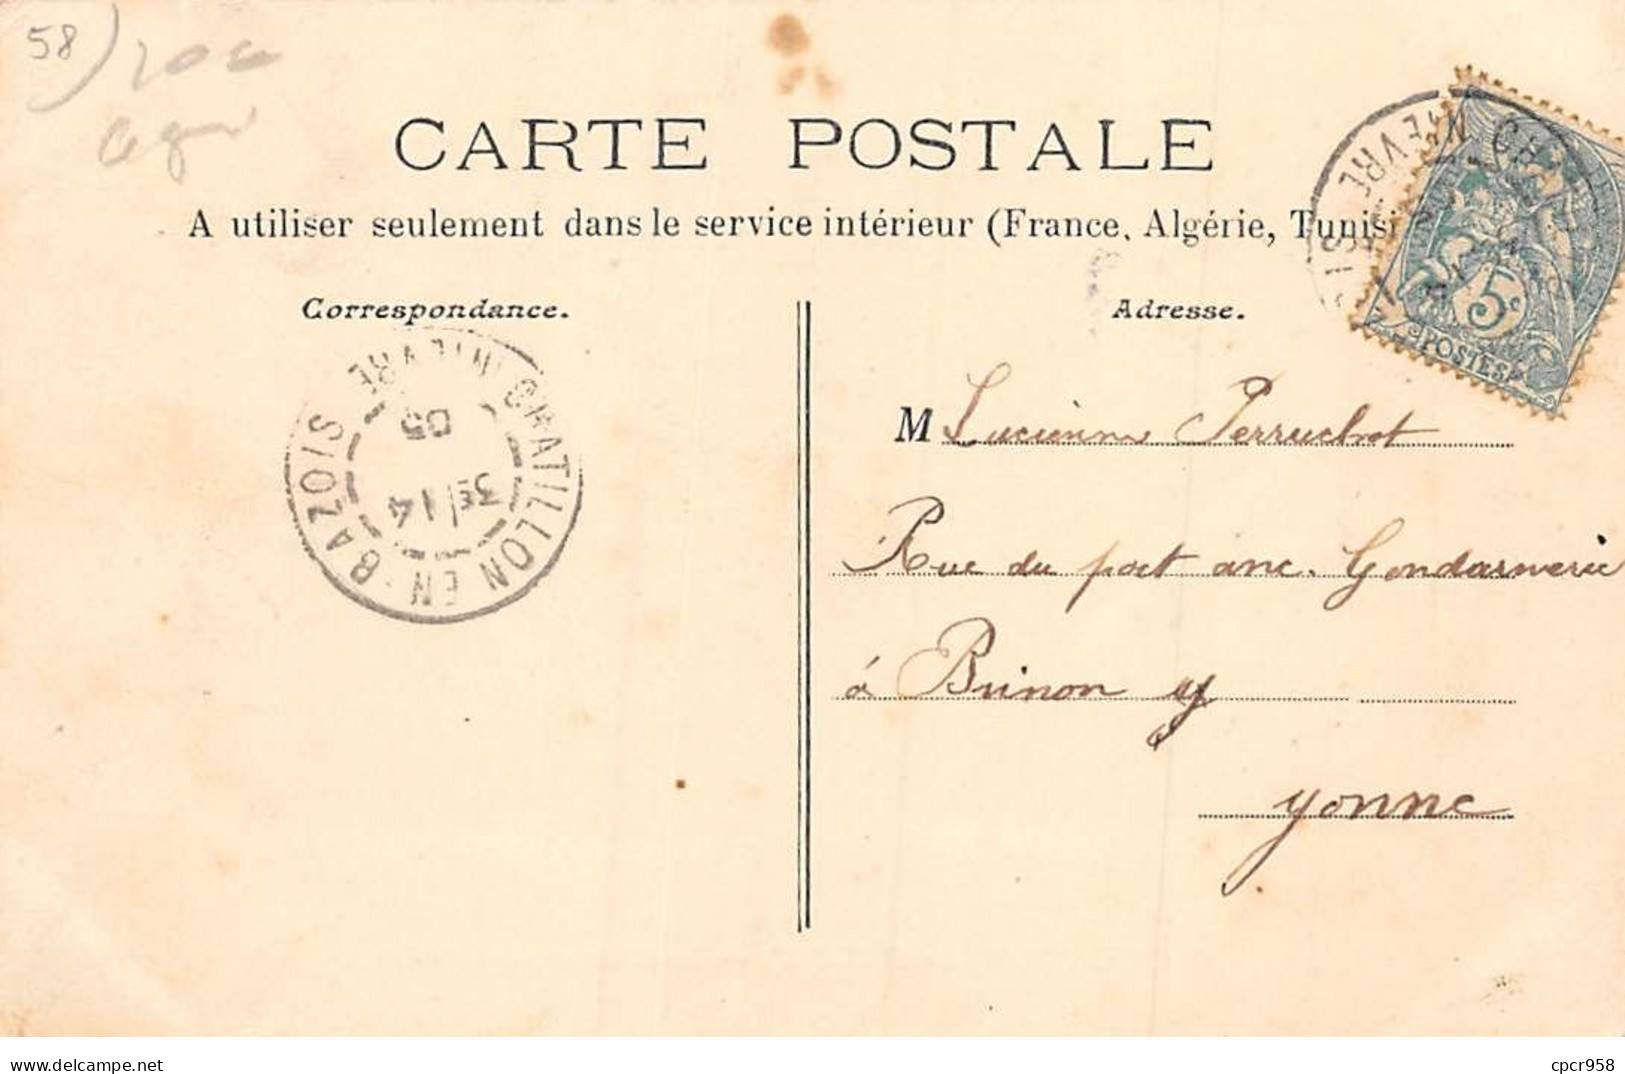 58
CARTE POSTALE
A utiliser seulement dans le service intérieur (France, Algérie, Tunisi
Correspondance.
Adresse.
CHATILLON EN BAZOIS NIEVRE
3E/14
05
5c
POSTES
M Lucienne Perruchot
Rue du port anc. Gendarmerie
à Brinon
Yonne
www.delcampe.net
cpcr958